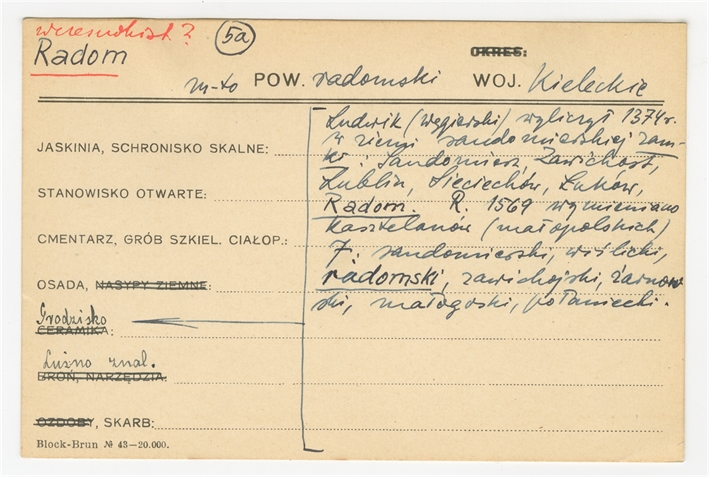 wczesnohist.?
Radom
5a
OKRES:
m-to POW. radomski WOJ. Kieleckie
JASKINIA, SCHRONISKO SKALNE:
STANOWISKO OTWARTE:
CMENTARZ, GRÓB SZKIEL. CIAŁOP.:
OSADA, NASYPY ZIEMNE:
Grodzisko
CERAMIKA:
Luźno znal.
BROŃ, NARZĘDZIA:
OZDOBY, SKARB:
Block-Brun № 43—20.000.
Ludwik (węgierski) wyliczył 1374 r.
w ziemi sandomierskiej zam-
ki: Sandomierz, Zawichost,
Lublin, Sieciechów, Łuków,
Radom. R. 1569 wymieniano
kasztelanów (małopolskich)
7: sandomierski, wiślicki,
radomski, zawichojski, żarnow-
ski, małogoski, połaniecki.